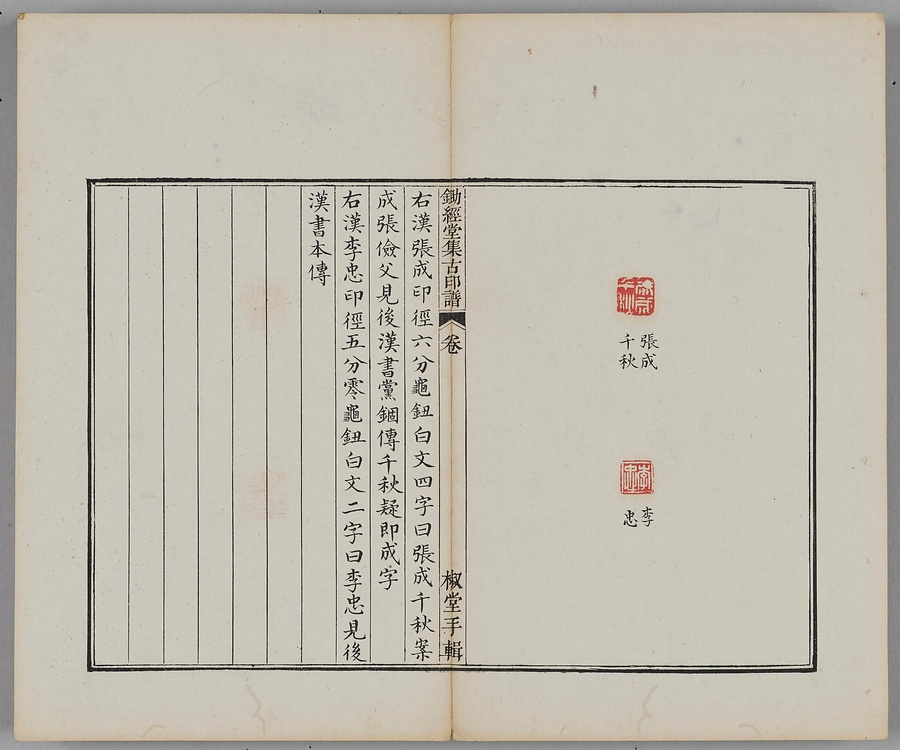 張成
千秋
李
忠
鋤經堂集古印譜
卷
椒堂手輯
右漢張成印徑六分龜鈕白文四字曰張成千秋案
成張儉父見後漢書黨錮傳千秋疑即成字
右漢李忠印徑五分零龜鈕白文二字曰李忠見後
漢書本傳